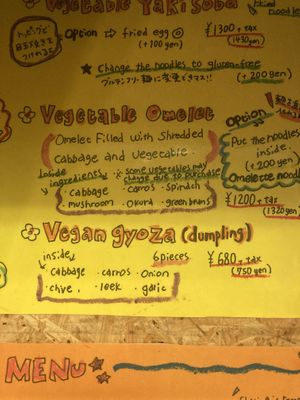 Vegetable Yakisoba
fried noodles
トッピングで
目玉焼きを
つけれる
Option ⇨ fried egg
(+100yen)
¥1300 + tax
(1430yen)
★ Change the noodles to gluten-free
グルテンフリー麺に変更できます!!
(+200yen)
Vegetable Omelet
Omelet Filled with Shredded
Cabbage and Vegetable.
Option
Put the noodles
inside.
(+200yen)
Omelette noodle
inside
ingredients
☆ some vegetables may
change due to purchase
・cabbage ・carros ・spinach
mushroom ・okura ・green beans
¥1200 + tax
(1320yen)
Vegan gyoza (dumpling)
inside
6pieces
¥680 + tax
(750yen)
・cabbage ・carros ・onion
・chive ・leek ・galic
MENU